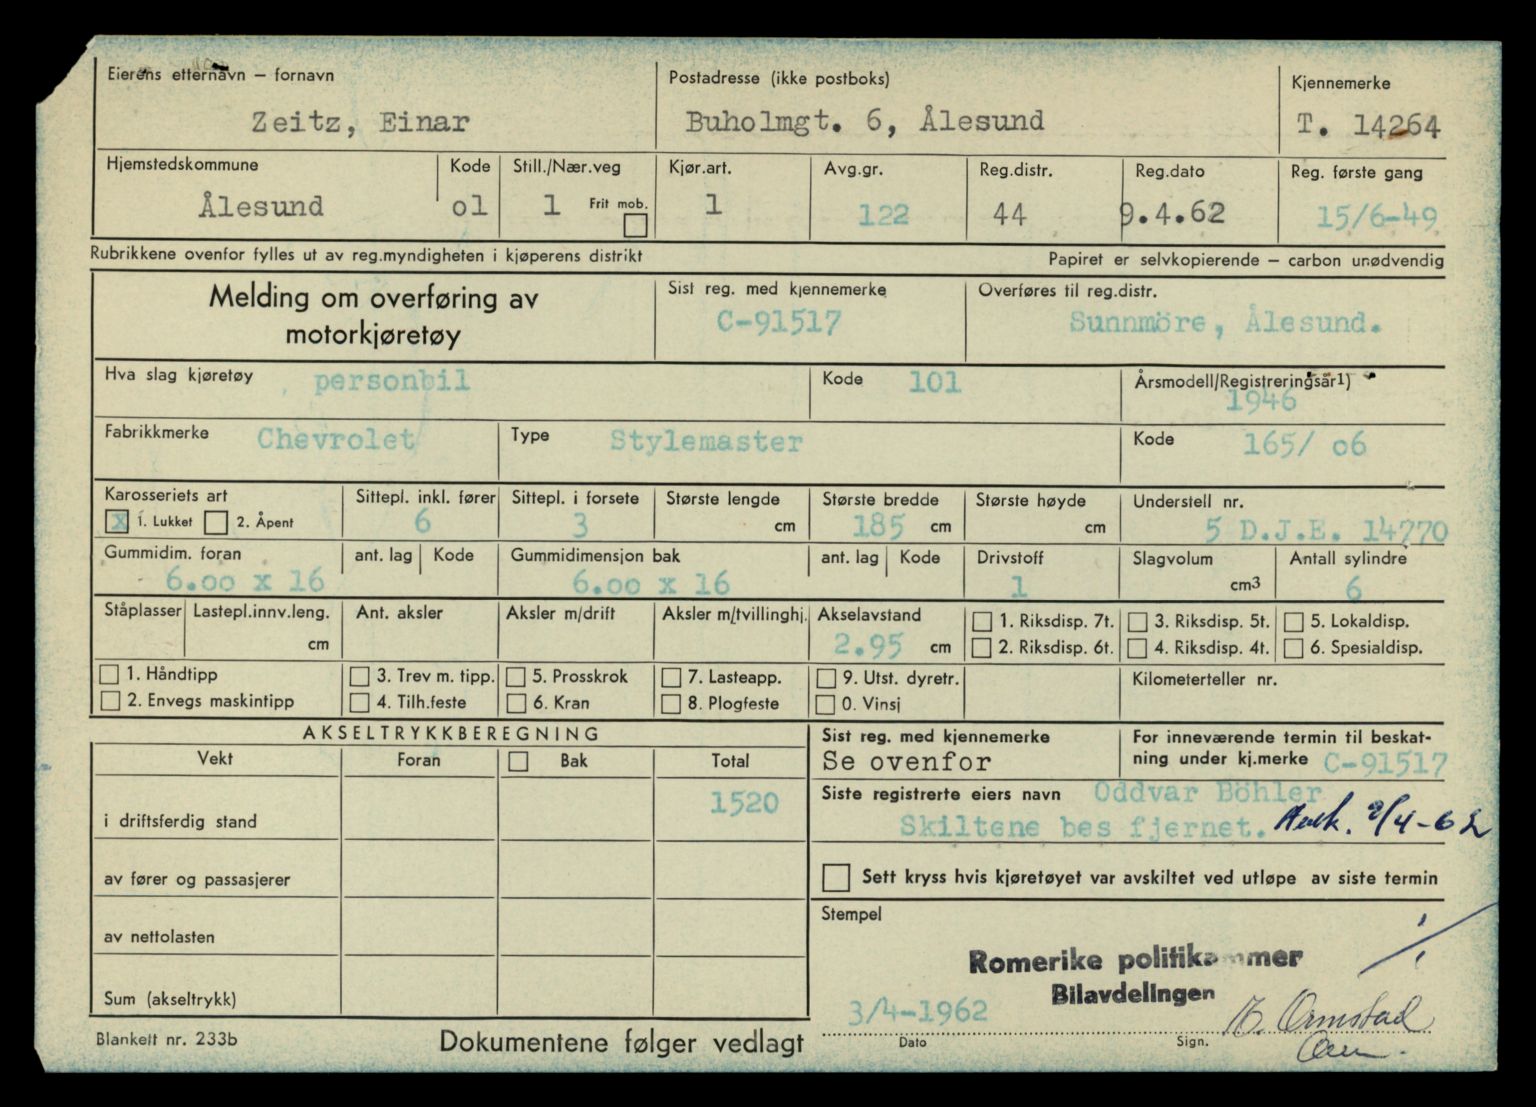 Eierens etternavn – fornavn Postadresse (ikke postboks) Kjennemerke
Zeitz, Einar Buholmgt. 6, Ålesund T. 14264
Hjemstedskommune Kode Still./Nær.veg Kjør.art. Avg.gr. Reg.distr. Reg.dato Reg. første gang
Ålesund o1 1 Frit mob. 1 122 44 9.4.62 15/6-49
Rubrikkene ovenfor fylles ut av reg.myndigheten i kjøperens distrikt Papiret er selvkopierende – carbon unødvendig
Melding om overføring av Sist reg. med kjennemerke Overføres til reg.distr.
motorkjøretøy C-91517 Sunnmöre, Ålesund.
Hva slag kjøretøy personbil Kode 101 Årsmodell/Registreringsår1)
1946
Fabrikkmerke Chevrolet Type Stylemaster Kode 165/ o6
Karosseriets art Sittepl. inkl. fører Sittepl. i forsete Største lengde Største bredde Største høyde Understell nr.
x 1. Lukket 2. Åpent 6 3 cm 185 cm cm 5 D.J.E. 14770
Gummidim. foran ant. lag Kode Gummidimensjon bak ant. lag Kode Drivstoff Slagvolum Antall sylindre
6.oo x 16 6.oo x 16 1 cm3 6
Ståplasser Lastepl.innv.leng. Ant. aksler Aksler m/drift Aksler m/tvillinghj. Akselavstand 1. Riksdisp. 7t. 3. Riksdisp. 5t. 5. Lokaldisp.
cm 2.95 cm 2. Riksdisp. 6t. 4. Riksdisp. 4t. 6. Spesialdisp.
1. Håndtipp 3. Trev m. tipp. 5. Prosskrok 7. Lasteapp. 9. Utst. dyretr. Kilometerteller nr.
2. Envegs maskintipp 4. Tilh.feste 6. Kran 8. Plogfeste 0. Vinsj
AKSELTRYKKBEREGNING Sist reg. med kjennemerke For inneværende termin til beskat-
Vekt Foran Bak Total Se ovenfor ning under kj.merke C-91517
1520 Siste registrerte eiers navn Oddvar Böhler
i driftsferdig stand Skiltene bes fjernet. 9/4-62
av fører og passasjerer Sett kryss hvis kjøretøyet var avskiltet ved utløpe av siste termin
Stempel
av nettolasten
Romerike politikammer
Sum (akseltrykk) Bilavdelingen
3/4-1962 Ormstad
Blankett nr. 233b Dokumentene følger vedlagt Dato Sign.